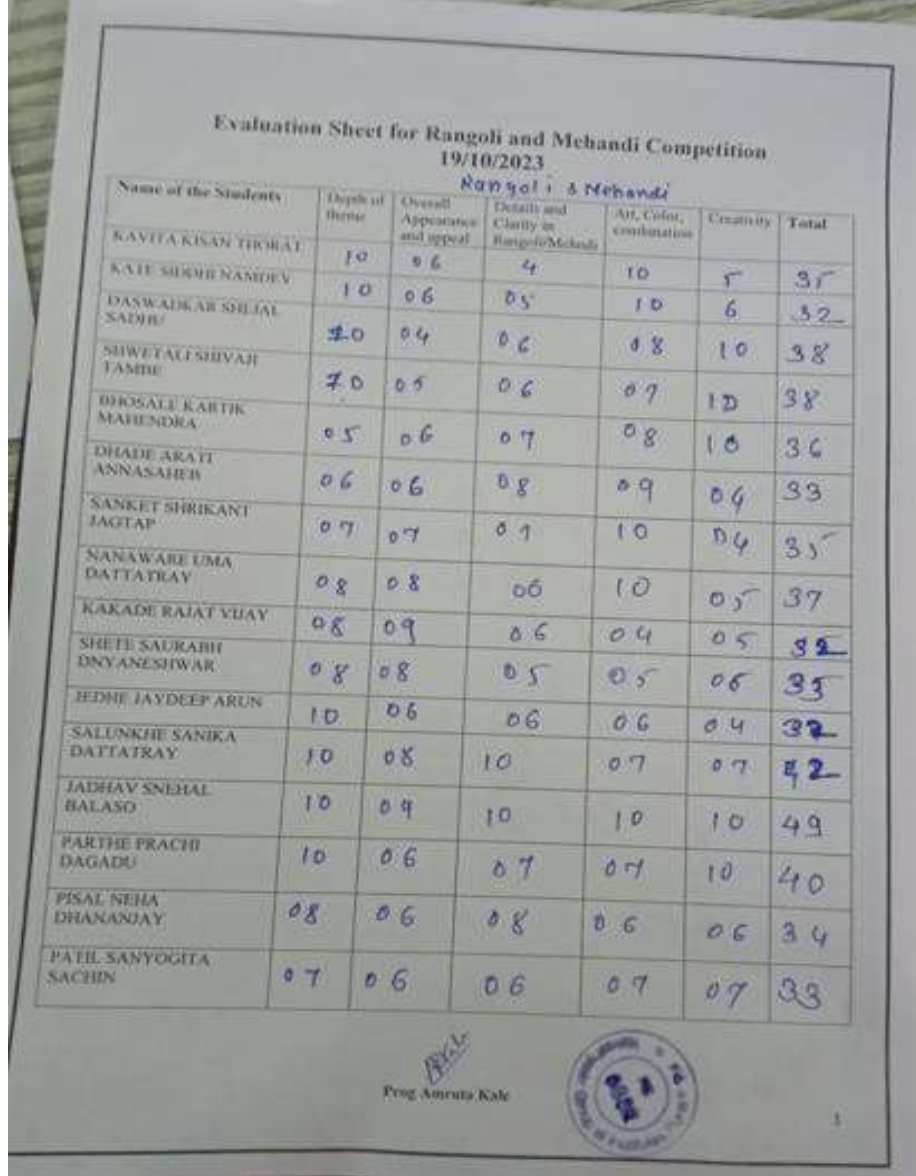 Evaluation Sheet for Rangoli and Mehandi Competition
19/10/2023
Rangoli & Mehandi
Name of the Students Depth of theme Overall Appearance and appeal Details and Clarity in Rangoli/Mehndi Art, Color, combination Creativity Total
KAVITA KISAN THORAT 10 06 4 10 5 35
KATE SIDDHI NAMDEV 10 06 05 10 6 32
DASWADKAR SHEJAL SADHU 10 04 06 08 10 38
SHWETALI SHIVAJI TAMBE 10 05 06 07 10 38
BHOSALE KARTIK MAHENDRA 05 06 07 08 10 36
DHADE ARATI ANNASAHEB 06 06 08 09 04 33
SANKET SHRIKANT JAGTAP 07 07 07 10 04 35
NANAWARE UMA DATTATRAY 08 08 06 10 05 37
KAKADE RAJAT VIJAY 08 09 06 04 05 32
SHETE SAURABH DNYANESHWAR 08 08 05 05 06 35
JEDHE JAYDEEP ARUN 10 06 06 06 04 32
SALUNKHE SANIKA DATTATRAY 10 08 10 07 07 42
JADHAV SNEHAL BALASO 10 09 10 10 10 49
PARTHE PRACHI DAGADU 10 06 07 07 10 40
PISAL NEHA DHANANJAY 08 06 08 06 06 34
PATIL SANYOGITA SACHIN 07 06 06 07 07 33
Prog Amruta Kale
1